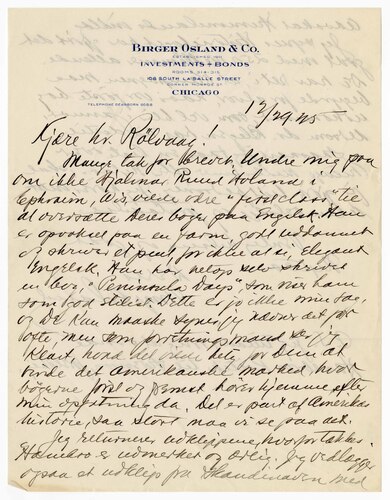 BIRGER OSLAND & CO.
ESTABLISHED 1911
INVESTMENTS-BONDS
ROOMS 314-315
108 SOUTH LA SALLE STREET
CORNER MONROE ST.
CHICAGO
TELEPHONE DEARBORN
12/29 25
Kjære hr. Rölvaag!
Mange tak for brevet. Undre mig paa
om ikke Hjalmar Ruud Holand i
Ephraim, Wis, vilde være "first class" til
at oversætte Deres böger paa Engelsk. Han
er opvokset paa en farm, godt utdannet
og skriver et pent, for ikke at si, Elegant
Engelsk. Han har netop selv skrevet
en bok, "Peninsula Days" som viser ham
som god stilist. Dette er jo ikke min sak,
og De kan maaske synes jeg nævner det for
ofte, men som forretningsmand ser jeg
klart, hvad det vilde bety for Dem at
vinde det Amerikanske marked, hvor
bøgerne först og fremst hører hjemme efter
min opfatning da. Det er part af Amerikas
historie, saa stort maa vi se paa det.
Jeg returnerer utklippene, hvorfor takkes.
Hambro er utmerket og ærlig. Jeg vedlægger
ogsaa et utklip fra Skandinaven med